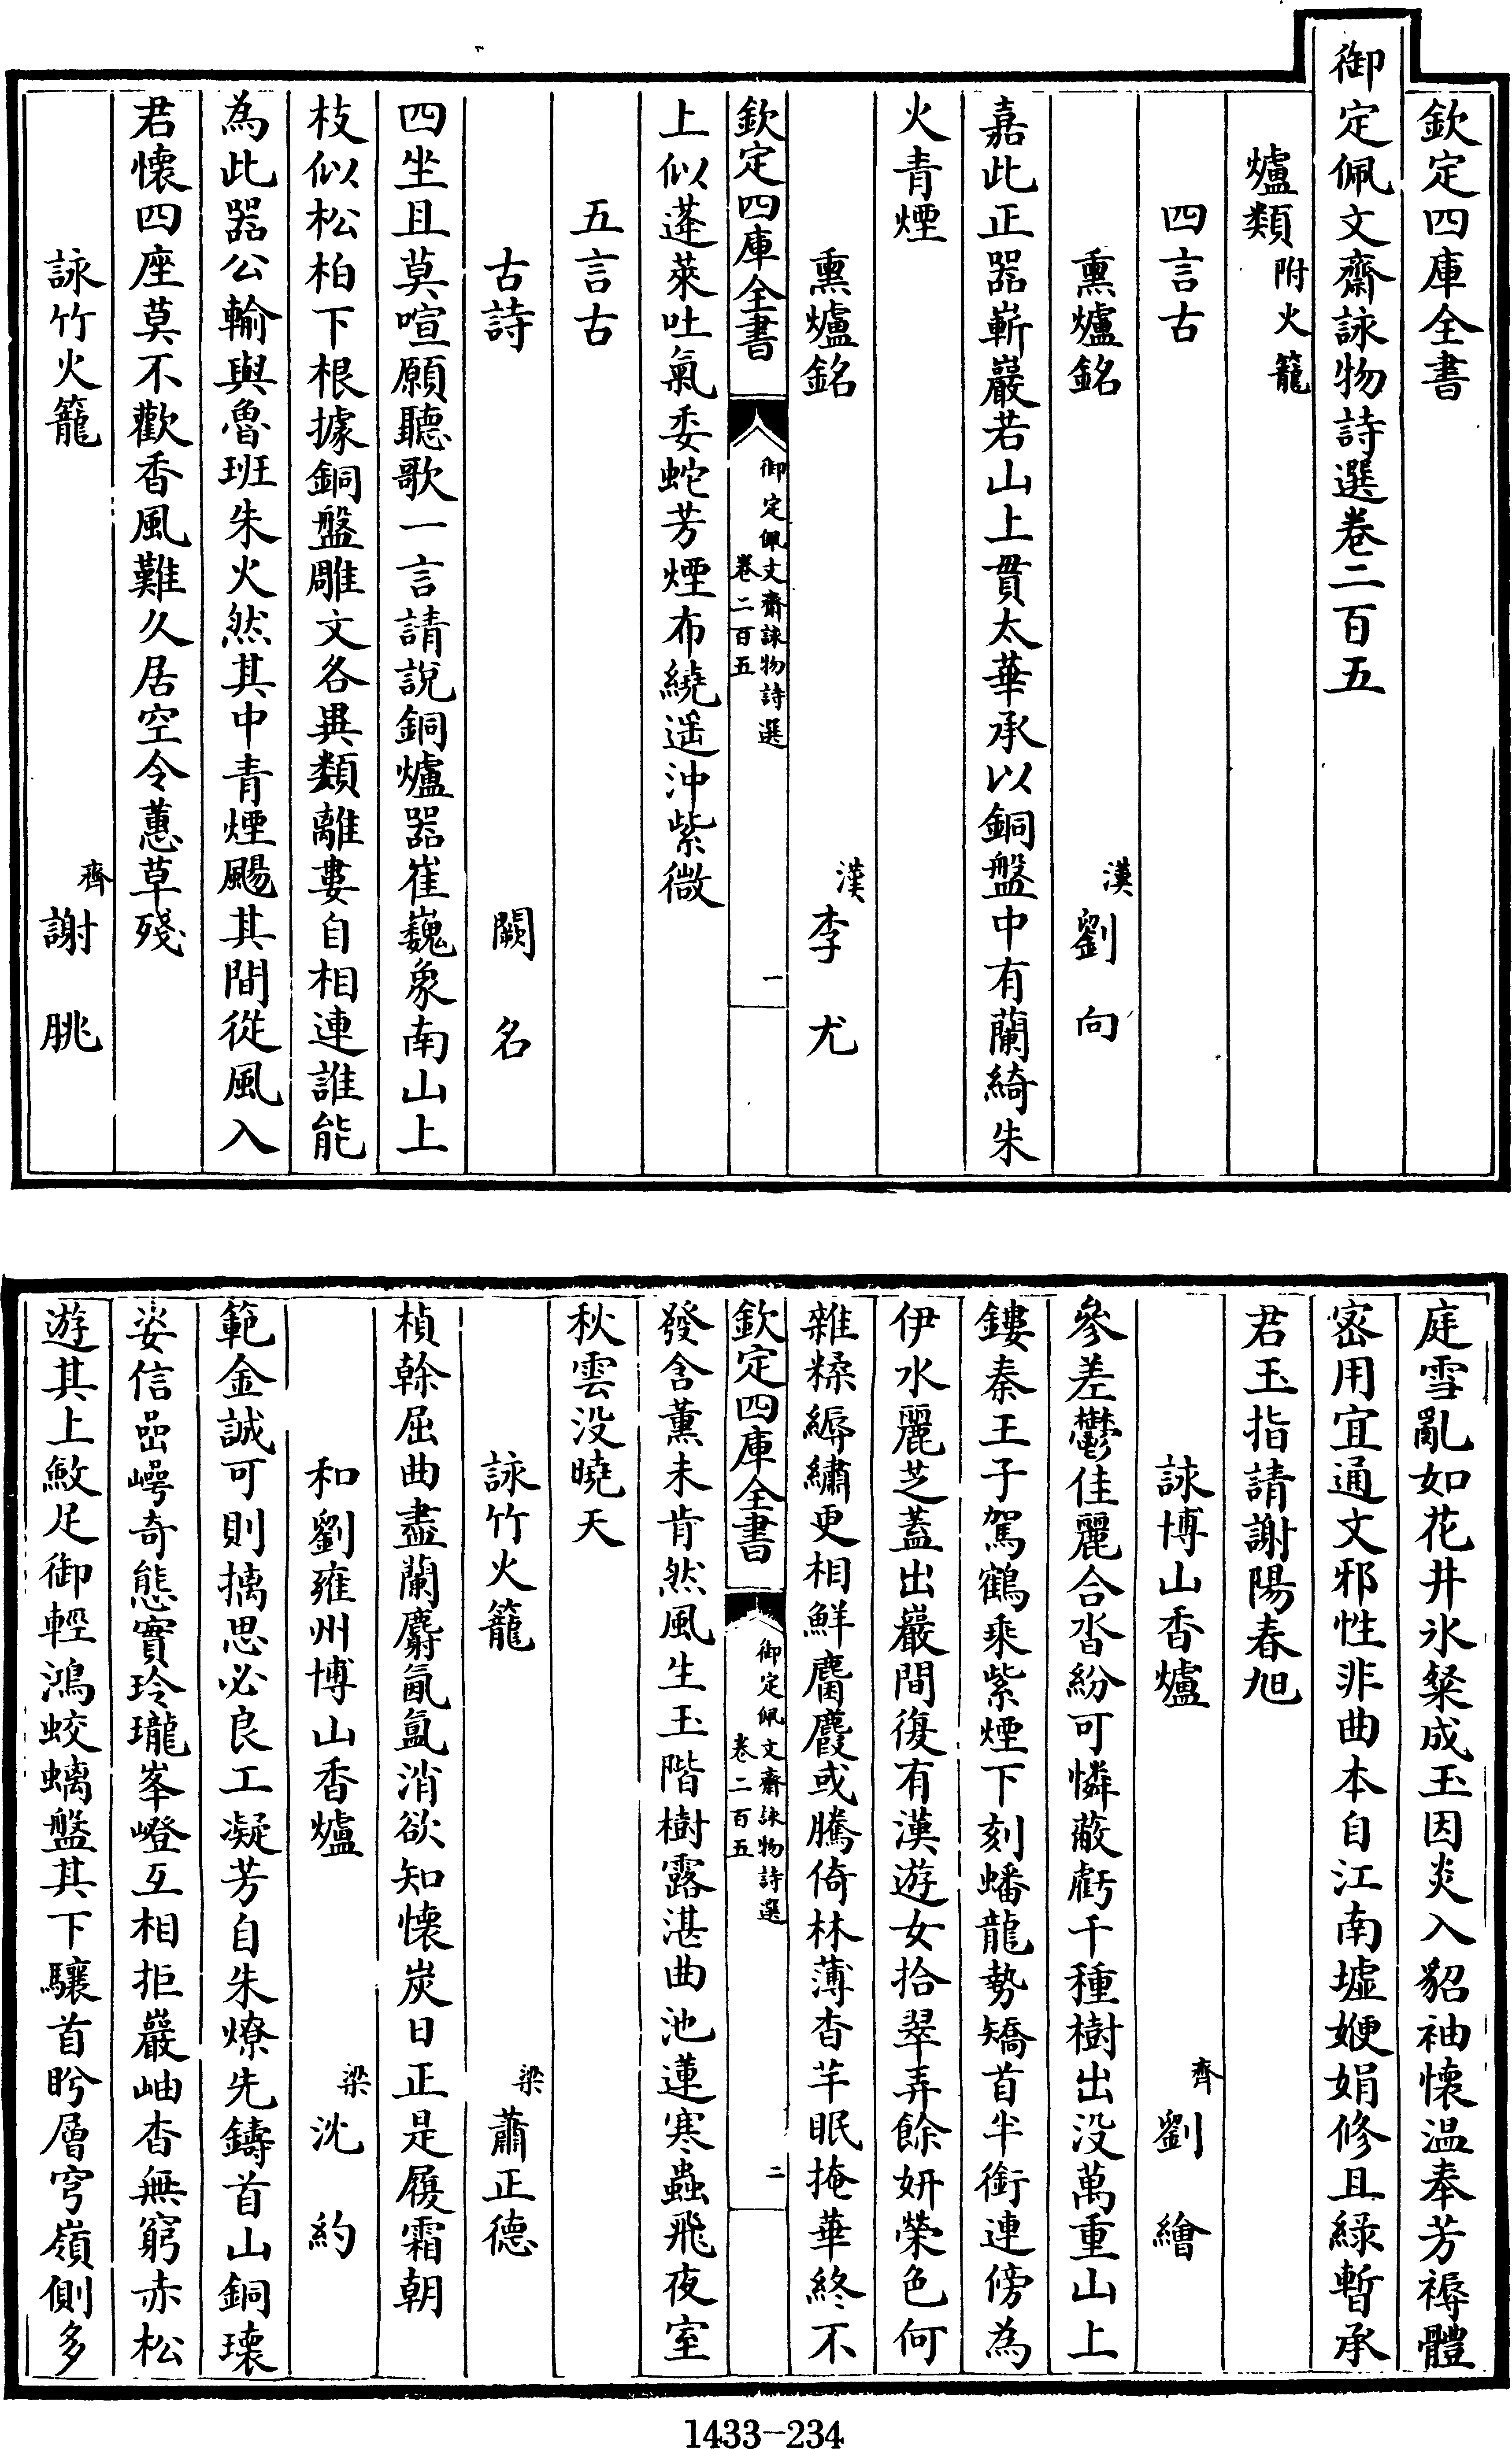 欽定四庫全書
御定佩文齋詠物詩選卷二百五
爐類附火籠
四言古
熏爐銘 漢劉向
嘉此正器嶄巖若山上貫太華承以銅盤中有蘭綺朱
火青煙
熏爐銘 漢李尤
欽定四庫全書 御定佩文齋詠物詩選 卷二百五 一
上似蓬萊吐氣委蛇芳煙布繞遥沖紫微
五言古
古詩 闕名
四坐且莫喧願聽歌一言請說銅爐器崔巍象南山上
枝似松柏下根據銅盤雕文各異類離婁自相連誰能
為此器公輸與魯班朱火然其中青煙颺其間從風入
君懷四座莫不歡香風難久居空令蕙草殘
詠竹火籠 齊謝朓
庭雪亂如花井氷粲成玉因炎入貂袖懷温奉芳褥體
密用宜通文邪性非曲本自江南墟㛹娟修且緑暫承
君玉指請謝陽春旭
詠博山香爐 齊劉繪
參差鬱佳麗合沓紛可憐蔽虧千種樹出没萬重山上
鏤秦王子駕鶴乘紫煙下刻蟠龍勢矯首半銜連傍為
伊水麗芝蓋出巖間復有漢遊女拾翠弄餘妍榮色何
雜糅縟繡更相鮮麕麚或騰倚林薄杳芊眠掩華終不
欽定四庫全書 御定佩文齋詠物詩選 卷二百五 二
發含薰未肯然風生玉階樹露湛曲池蓮寒蟲飛夜室
秋雲没曉天
詠竹火籠 梁蕭正德
楨榦屈曲盡蘭麝氤氲消欲知懷炭日正是履霜朝
和劉雍州博山香爐 梁沈約
範金誠可則摛思必良工凝芳自朱燎先鑄首山銅瓌
姿信嵒崿奇態實玲瓏峯嶝互相拒巖岫杳無窮赤松
遊其上斂足御輕鴻蛟螭盤其下驤首盻層穹嶺側多
1433-234